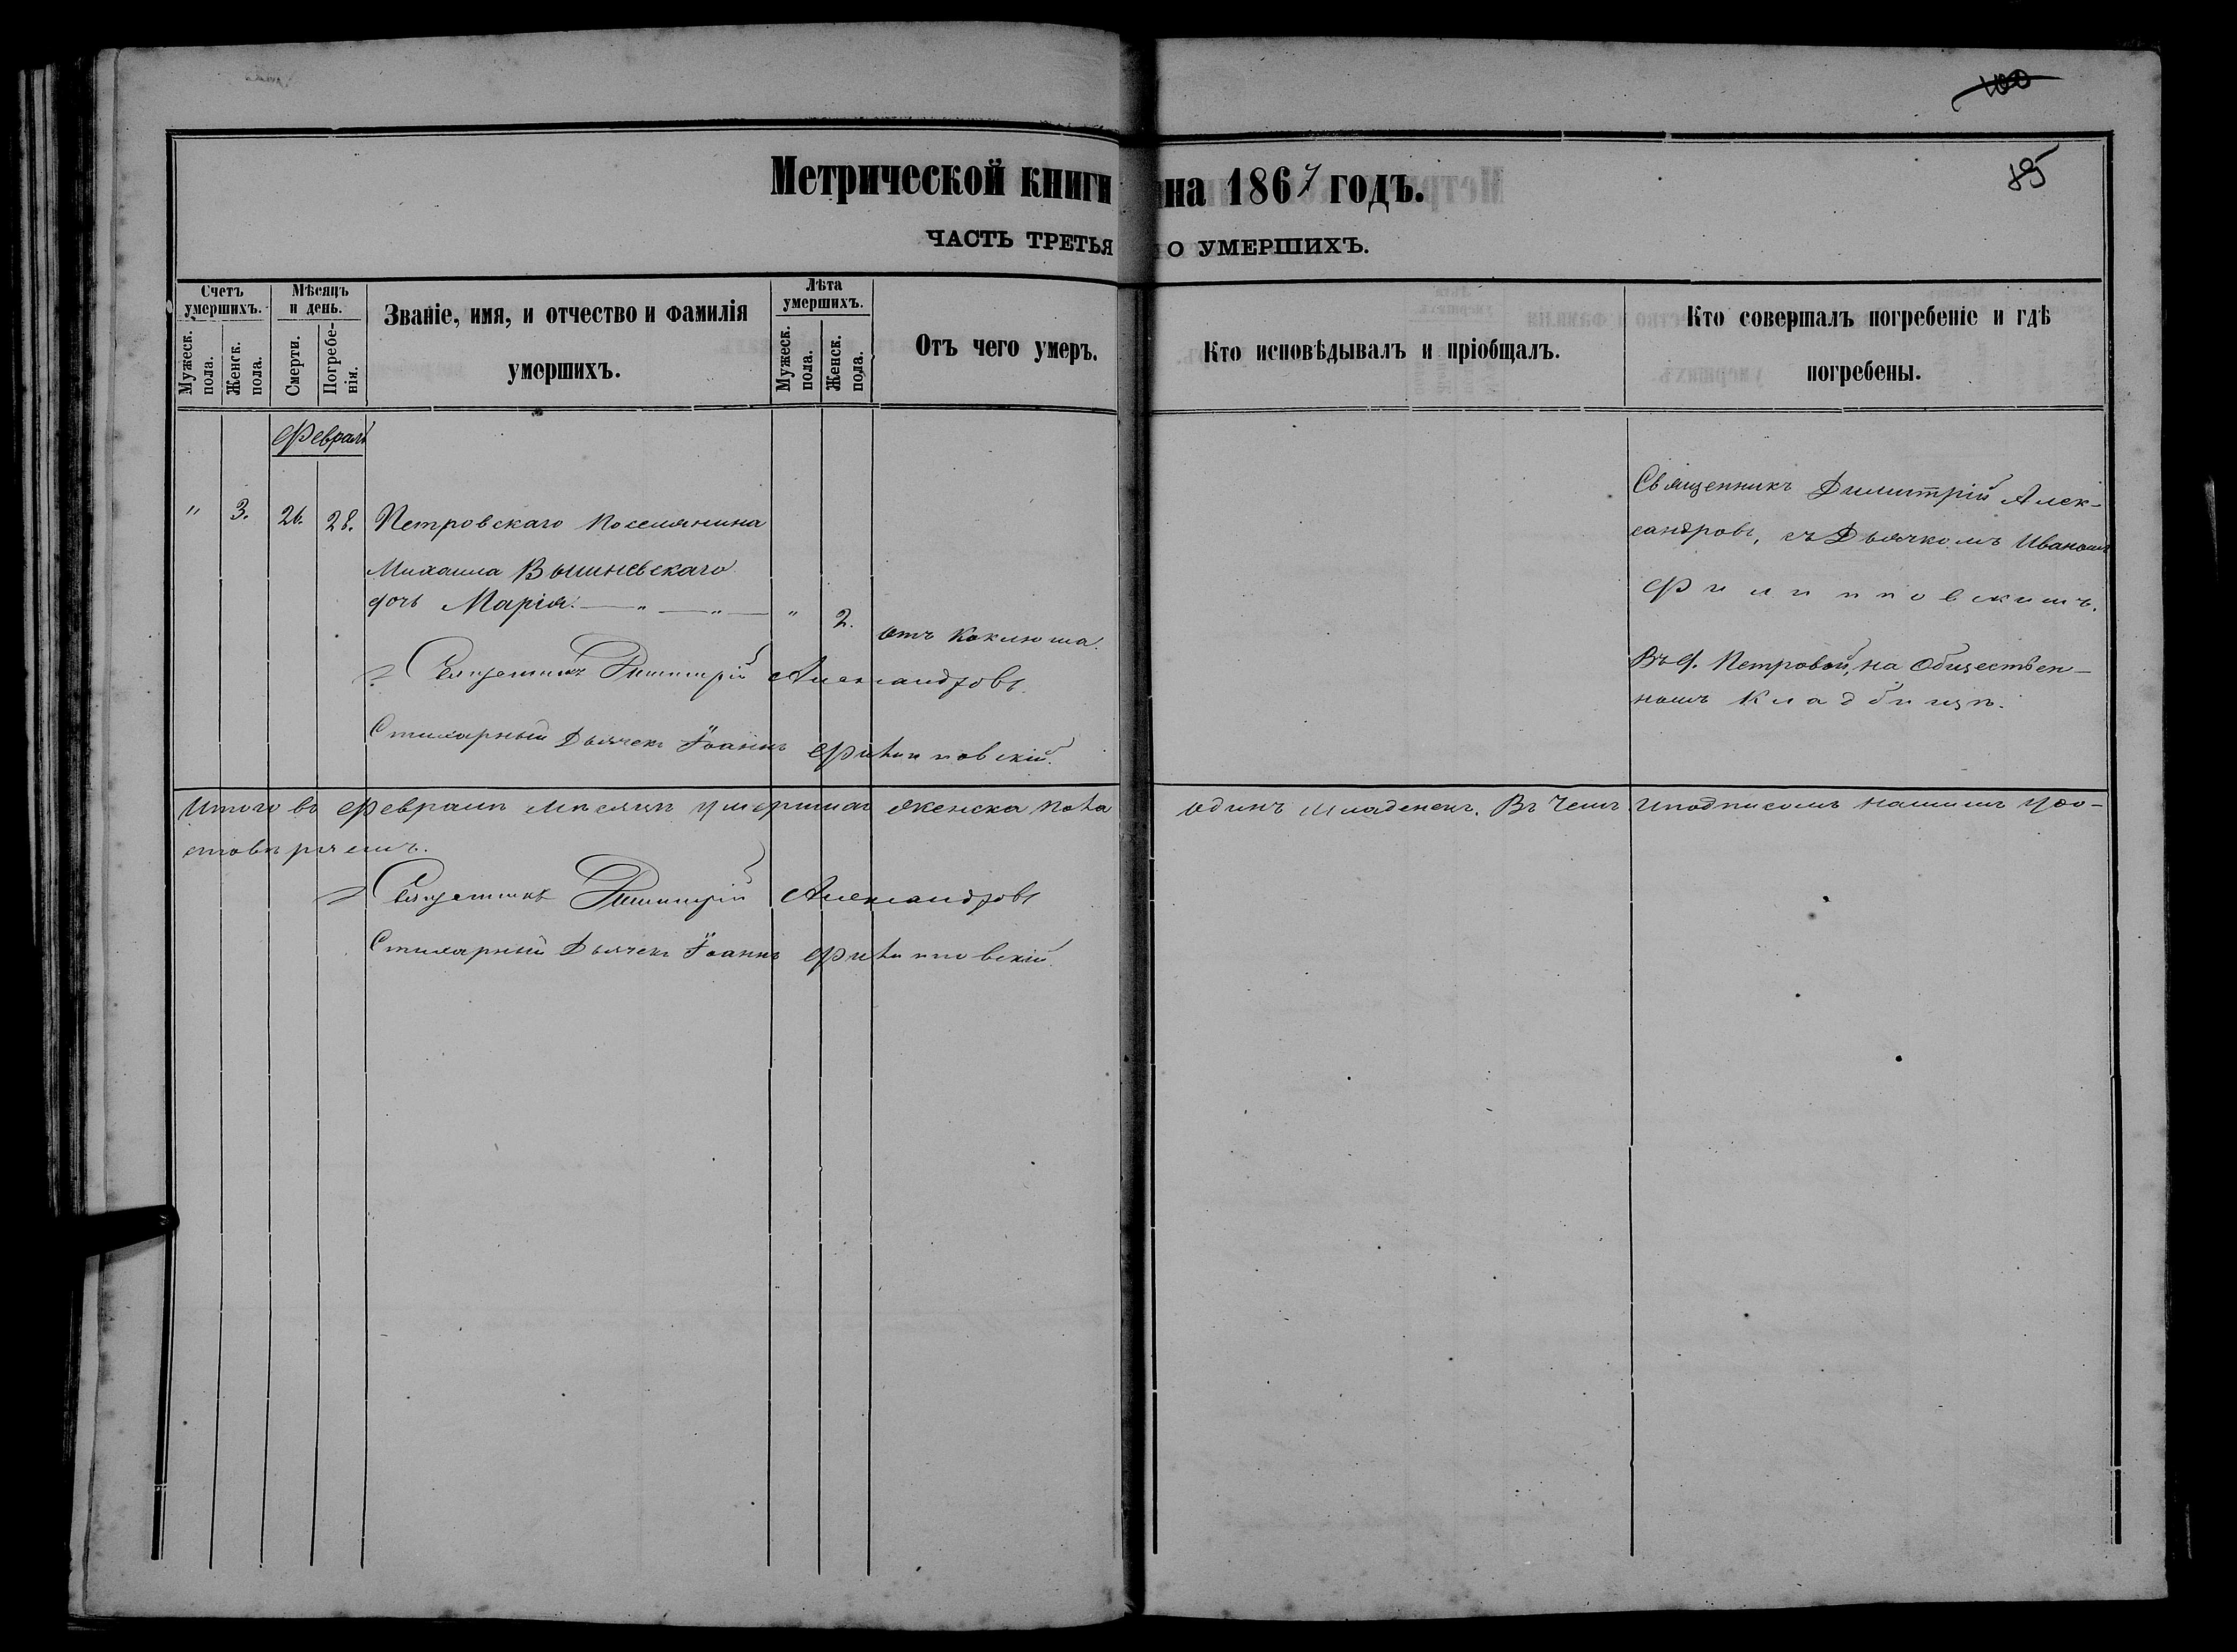 100
85
Метрической книги на 1867 годъ.
ЧАСТЬ ТРЕТЬЯ О УМЕРШИХЪ.
Счетъ умершихъ.
Мужеск. пола.
Женск. пола.
Мѣсяцъ и день.
Смерти.
Погребенія.
Званіе, имя, и отчество и фамилія
умершихъ.
Лѣта умершихъ.
Мужеск. пола.
Женск. пола.
Отъ чего умеръ.
Кто исповѣдывалъ и пріобщалъ.
Кто совершалъ погребеніе и гдѣ
погребены.
Февраль
" 3. 26. 28. Петровскаго поселянина
Михаила Вышневскаго
дочь Марія. — " — " — " 2. отъ коклюша.
Священникъ Димитрій Александровъ.
Стихарный Дьячекъ Іоаннъ Филипповскій.
Священникъ Димитрій Алек-
сандровъ, съ Дьячкомъ Иваномъ
Филипповскимъ.
Въ д. Петровой, на Обществен-
номъ Кладбищѣ.
Итого въ Февралѣ мѣсяцѣ умершихъ женска пола одинъ младенецъ. Въ чемъ и подписомъ нашимъ удо-
стовѣряемъ.
Священникъ Димитрій Александровъ
Стихарный Дьячекъ Іоаннъ Филипповскій.